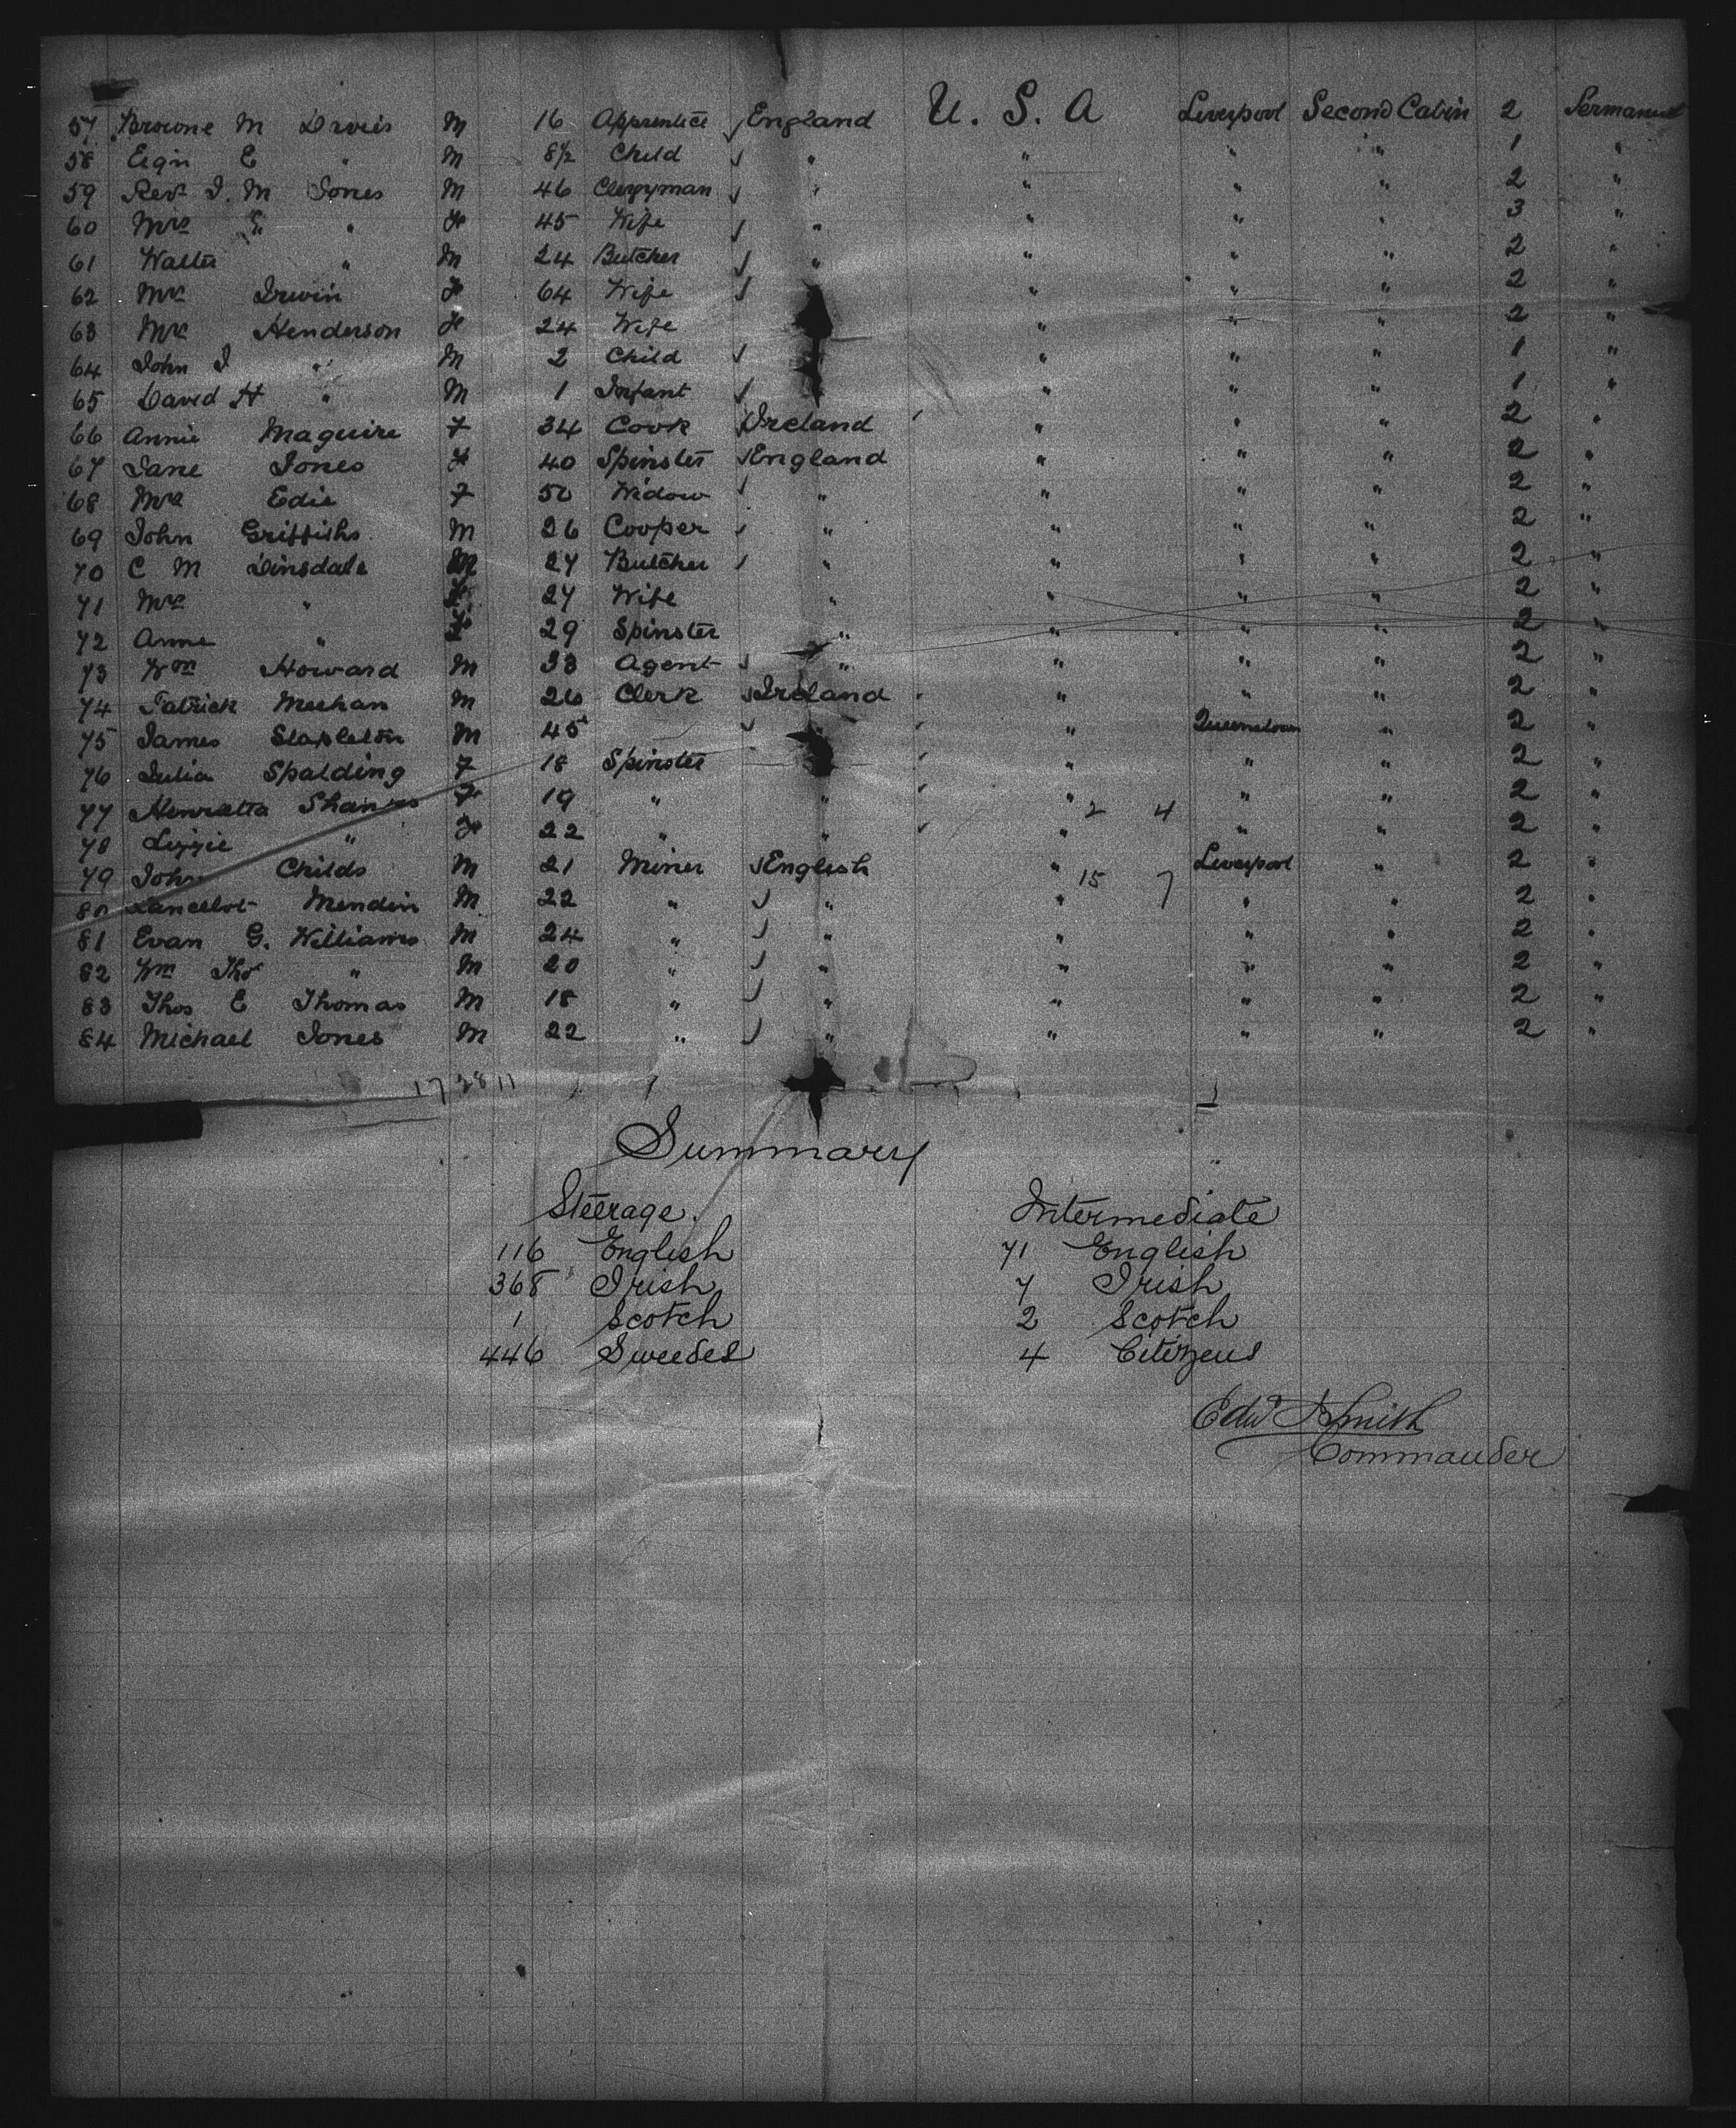 57 Browne M Davies M 16 Apprentice England U. S. A Liverpool Second Cabin 2 Permanent
58 E " M 8½ Child " " " " 1 "
59 Revd J. M Jones M 46 Clergyman " " " " 2 "
60 Mrs E " F 45 Wife " " " " 3 "
61 Walter " M 24 Butcher " " " " 2 "
62 Mrs Irwin F 64 Wife " " " 2 "
63 Mrs Henderson F 24 Wife " " " 2 "
64 John J " M 2 Child " " " 1 "
65 David H " M 1 Infant " " " 1 "
66 Annie Maguire F 34 Cook Ireland " " " 2 "
67 Jane Jones F 40 Spinster England " " " 2 "
68 Mrs Edie F 50 Widow " " " " 2 "
69 John Griffiths M 26 Cooper " " " " 2 "
70 C M Dinsdale M 27 Butcher " " " " 2 "
71 Mrs " F 27 Wife " " " " 2 "
72 Anne " F 29 Spinster " " " " 2 "
73 Wm Howard M 33 Agent " " " " 2 "
74 Patrick Meehan M 26 Clerk Ireland " " " 2 "
75 James Stapleton M 45 " " Queenstown " 2 "
76 Julia Spalding F 18 Spinster " " " 2 "
77 Henrietta Shanks F 19 " " " " " 2 "
2 4
78 Lizzie " F 22 " " " " " 2 "
79 John Childs M 21 Miner English " Liverpool " 2 "
15 7
80 Lancelot Mendin M 22 " " " " " 2 "
81 Evan G. Williams M 24 " " " " " 2 "
82 Wm Thos " M 20 " " " " " 2 "
83 Thos E Thomas M 18 " " " " " 2 "
84 Michael Jones M 22 " " " " " 2 "
17 28 11
Summary
Steerage. Intermediate
116 English 71 English
368 Irish 7 Irish
1 Scotch 2 Scotch
446 Sweedes 4 Citizens
Edwd J Smith
Commander